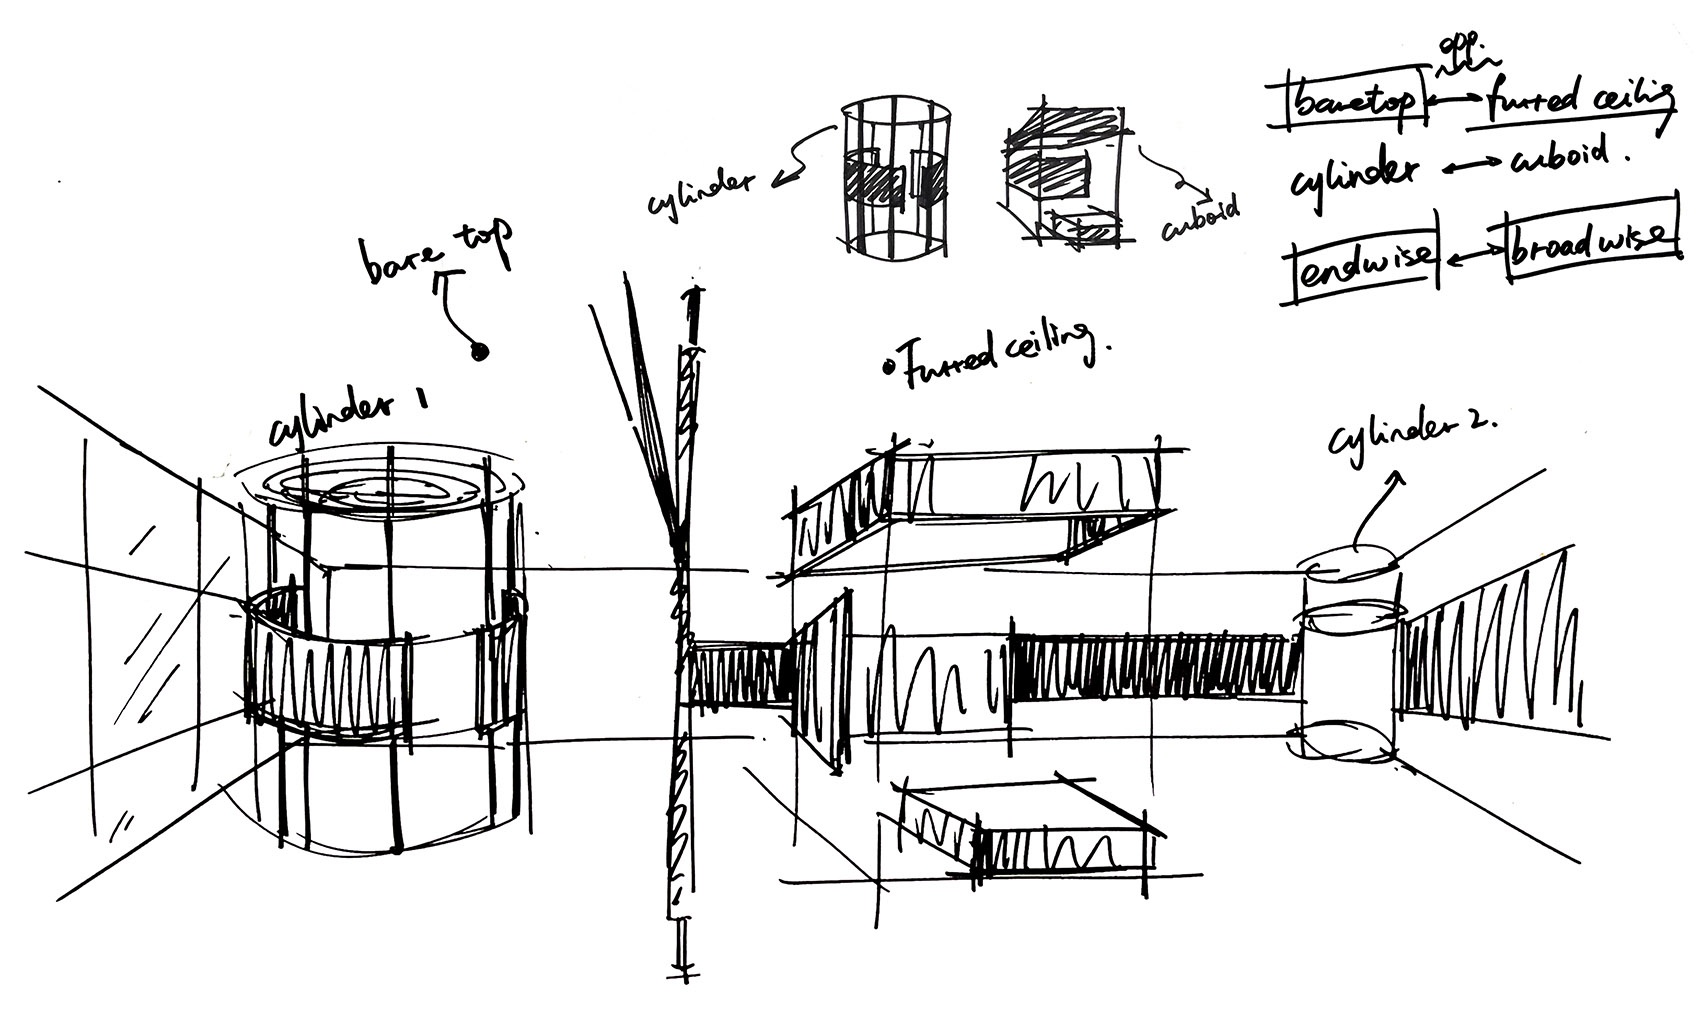 opp.
bare top ↔ furred ceiling
cylinder ↔ cuboid.
endwise ↔ broadwise
cylinder
cuboid
bare top
• Furred ceiling.
cylinder 1
cylinder 2.